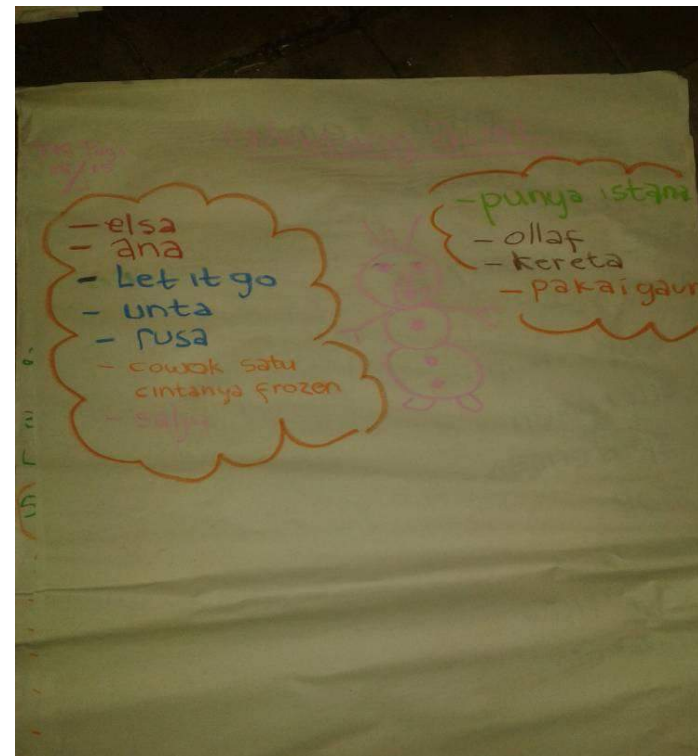 - elsa
- ana
- Let it go
- unta
- rusa
- cowok satu
cintanya frozen
- salju
- punya istana
- ollaf
- kereta
- pakai gaun